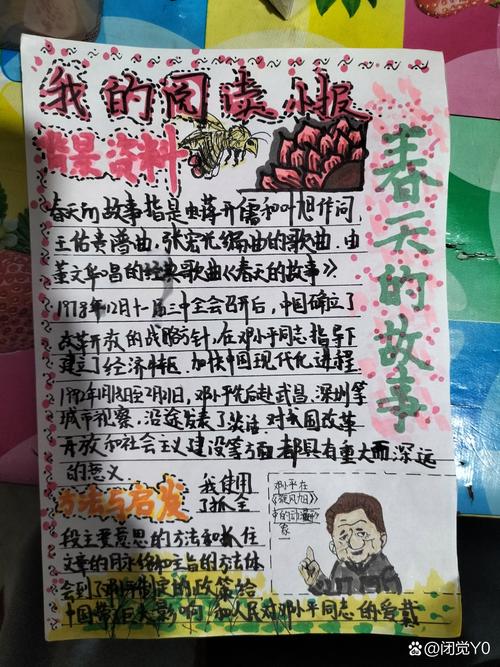 我的阅读小报
背景资料
春天的故事
春天的故事指是由蒋开儒和叶旭作词
王佑贵谱曲，张宏光编曲的歌曲，由
董文华唱的经典歌曲《春天的故事》
1978年12月十一届三中全会召开后，中国确立了
改革开放的战略方针，在邓小平同志指导下
建立了经济特区，加快中国现代化进程
1992年1月18日至2月21日，邓小平先后赴武昌、深圳等
城市视察，沿途发表了谈话 对我国改革
开放和社会主义建设等方面 都具有重大而深远
的意义
方法与启发
我使用
了抓全
段主要意思的方法和抓住
文章的
主旨的方法体
会到了邓
制定的政策给
中国带
巨大影响 和人民对邓小平同志的爱戴
邓小平在
《旋风
的动漫
象
@闭觉Y0